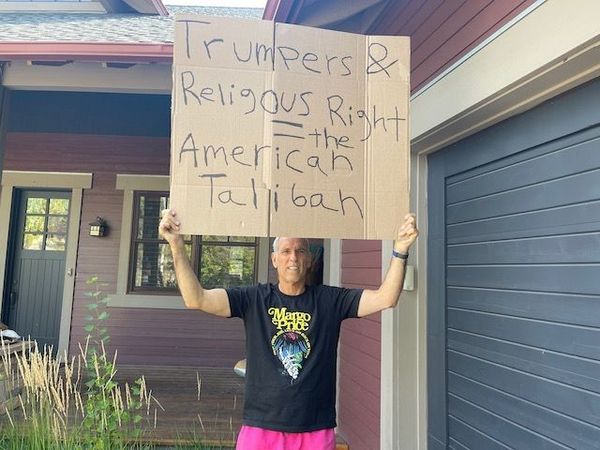 Trumpers &
Religous Right
= the
American
Taliban
Margo
Price